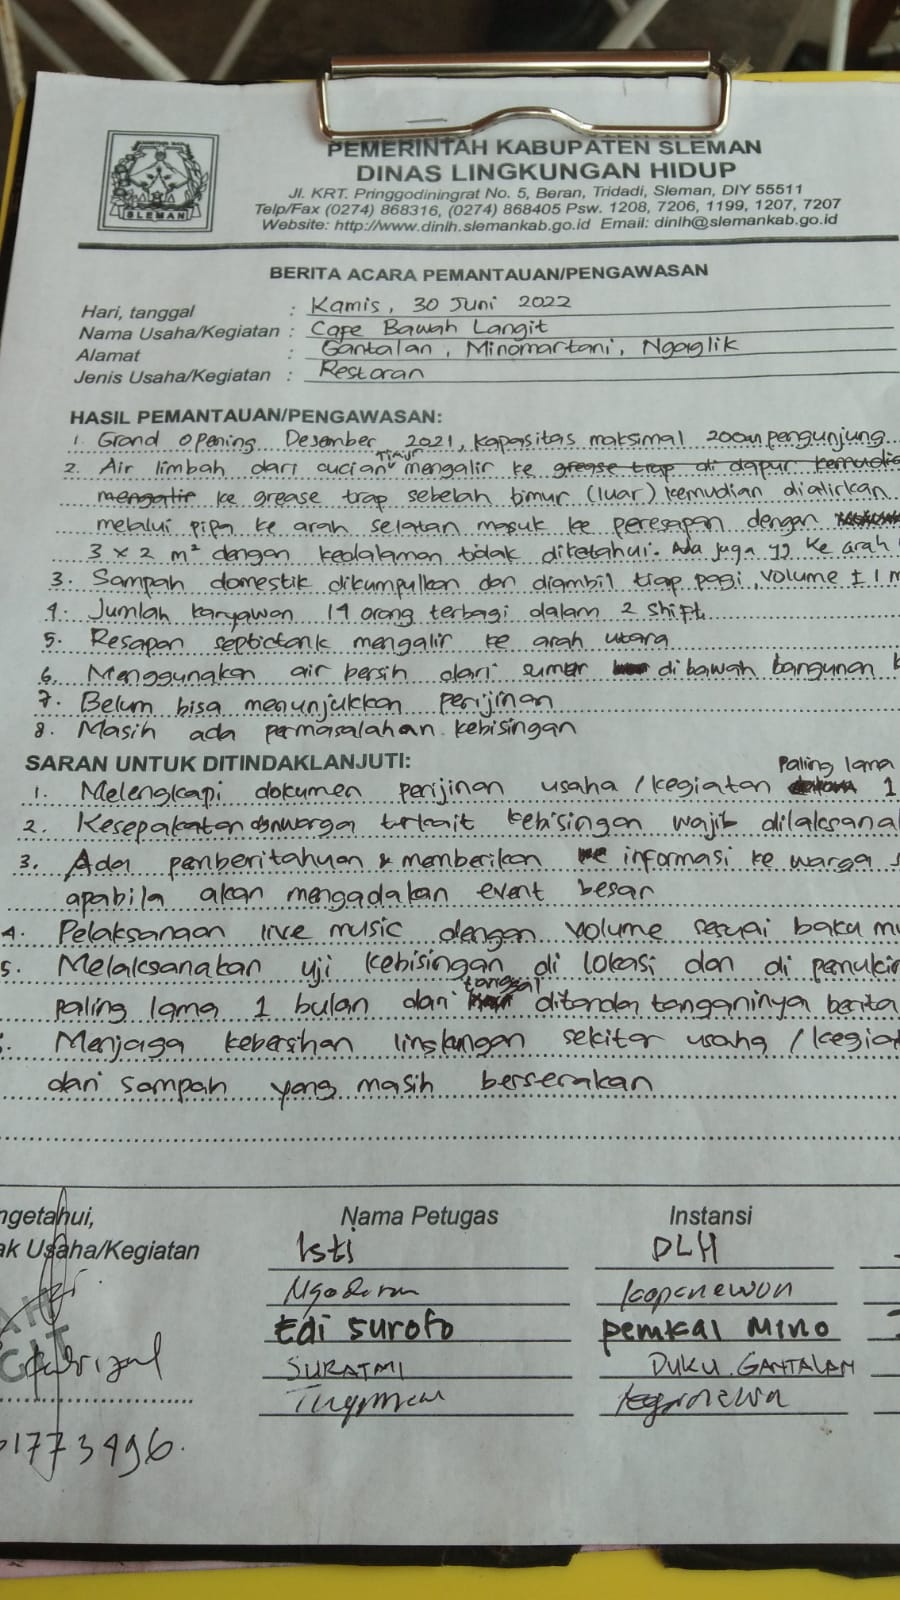 PEMERINTAH KABUPATEN SLEMAN
DINAS LINGKUNGAN HIDUP
Jl. KRT. Pringgodiningrat No. 5, Beran, Tridadi, Sleman, DIY 55511
Telp/Fax (0274) 868316, (0274) 868405 Psw. 1208, 7206, 1199, 1207, 7207
Website: http://www.dinlh.slemankab.go.id Email: dinlh@slemankab.go.id
SLEMAN
BERITA ACARA PEMANTAUAN/PENGAWASAN
Hari, tanggal : Kamis, 30 Juni 2022
Nama Usaha/Kegiatan : Cafe Bawah Langit
Alamat : Gantalan, Minomartani, Ngaglik
Jenis Usaha/Kegiatan : Restoran
HASIL PEMANTAUAN/PENGAWASAN:
1. Grand opening Desember 2021, kapasitas maksimal 200an pengunjung
2. Air limbah dari cucian mengalir ke grease trap di dapur kemudia
mengalir ke grease trap sebelah timur (luar) kemudian dialirkan
melalui pipa ke arah selatan masuk ke peresapan dengan
3 x 2 m² dengan kedalaman tidak diketahui. Ada juga yg ke arah
3. Sampah domestik dikumpulkan dan diambil tiap pagi, volume ± 1 m
4. Jumlah karyawan 14 orang terbagi dalam 2 shift
5. Resapan septictank mengalir ke arah utara
6. Menggunakan air bersih dari sumur di bawah bangunan
7. Belum bisa menunjukkan perijinan
8. Masih ada permasalahan kebisingan
SARAN UNTUK DITINDAKLANJUTI:
paling lama
1. Melengkapi dokumen perijinan usaha/kegiatan 1
2. Kesepakatan dgn warga terkait kebisingan wajib dilaksana
3. Ada pemberitahuan & memberikan informasi ke warga
apabila akan mengadakan event besar
4. Pelaksanaan live music dengan volume sesuai baku mu
5. Melaksanakan uji kebisingan di lokasi dan di pemukim
paling lama 1 bulan dari tanggal ditanda tanganinya berita
Menjaga kebersihan lingkungan sekitar usaha/kegiat
dari sampah yang masih berserakan
ngetahui, Nama Petugas Instansi
ak Usaha/Kegiatan Isti DLH
Kapanewon
Edi Suroto Pemkal Mino
SURATMI DUKU. GANTALAN
1773496.